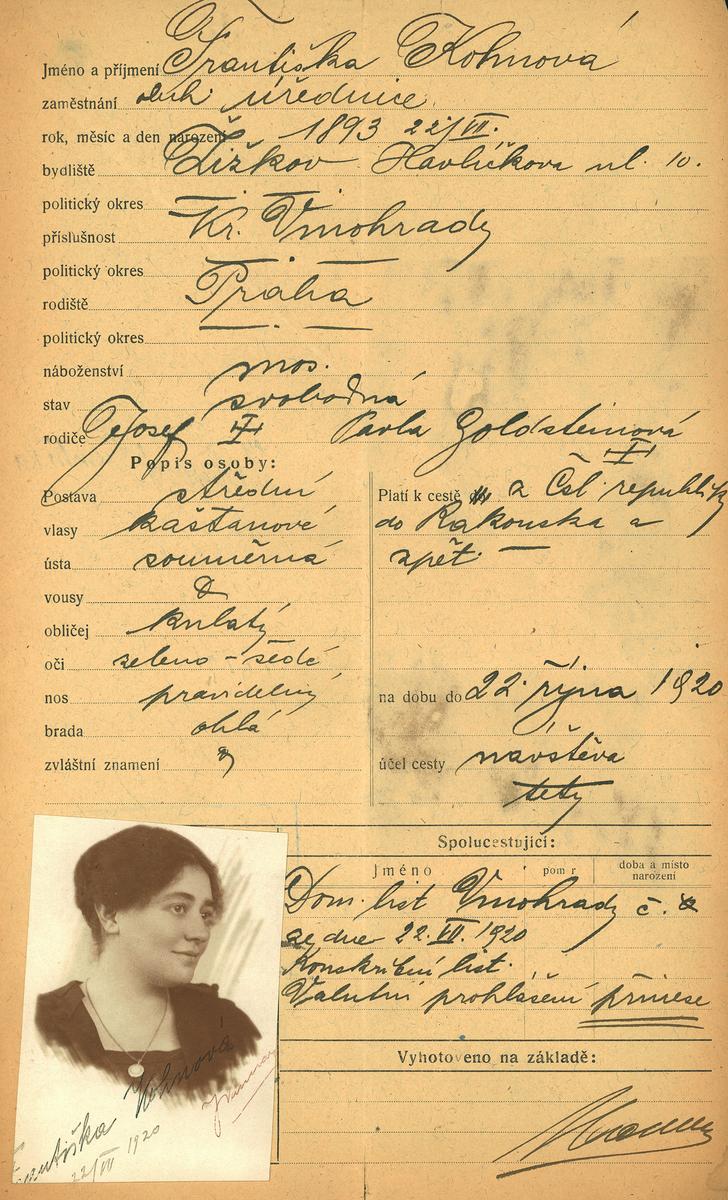 Jméno a příjmení Františka Kohnová
zaměstnání obch úřednice
rok, měsíc a den narození 1893 22/VII.
bydliště Žižkov Havlíčkova ul. 10.
politický okres
příslušnost Kr. Vinohrady
politický okres
rodiště Praha
politický okres
náboženství mos.
stav svobodná
rodiče Josef Pavla Goldsteinová
Popis osoby:
Postava střední
vlasy kaštanové
ústa souměrná
vousy
obličej kulatý
oči zeleno-šedé
nos pravidelný
brada oblá
zvláštní znamení
Platí k cestě z Čsl. republiky
do Rakouska a
zpět. —
na dobu do 22. října 1920
účel cesty návštěva
tety
Spolucestující:
Jméno pom r doba a místo narození
Dom. list Vinohrady č.
ze dne 22. VII. 1920
Konskribční list.
Valutní prohlášení přinese
Vyhotoveno na základě:
Františka Kohnová
22/VII 1920